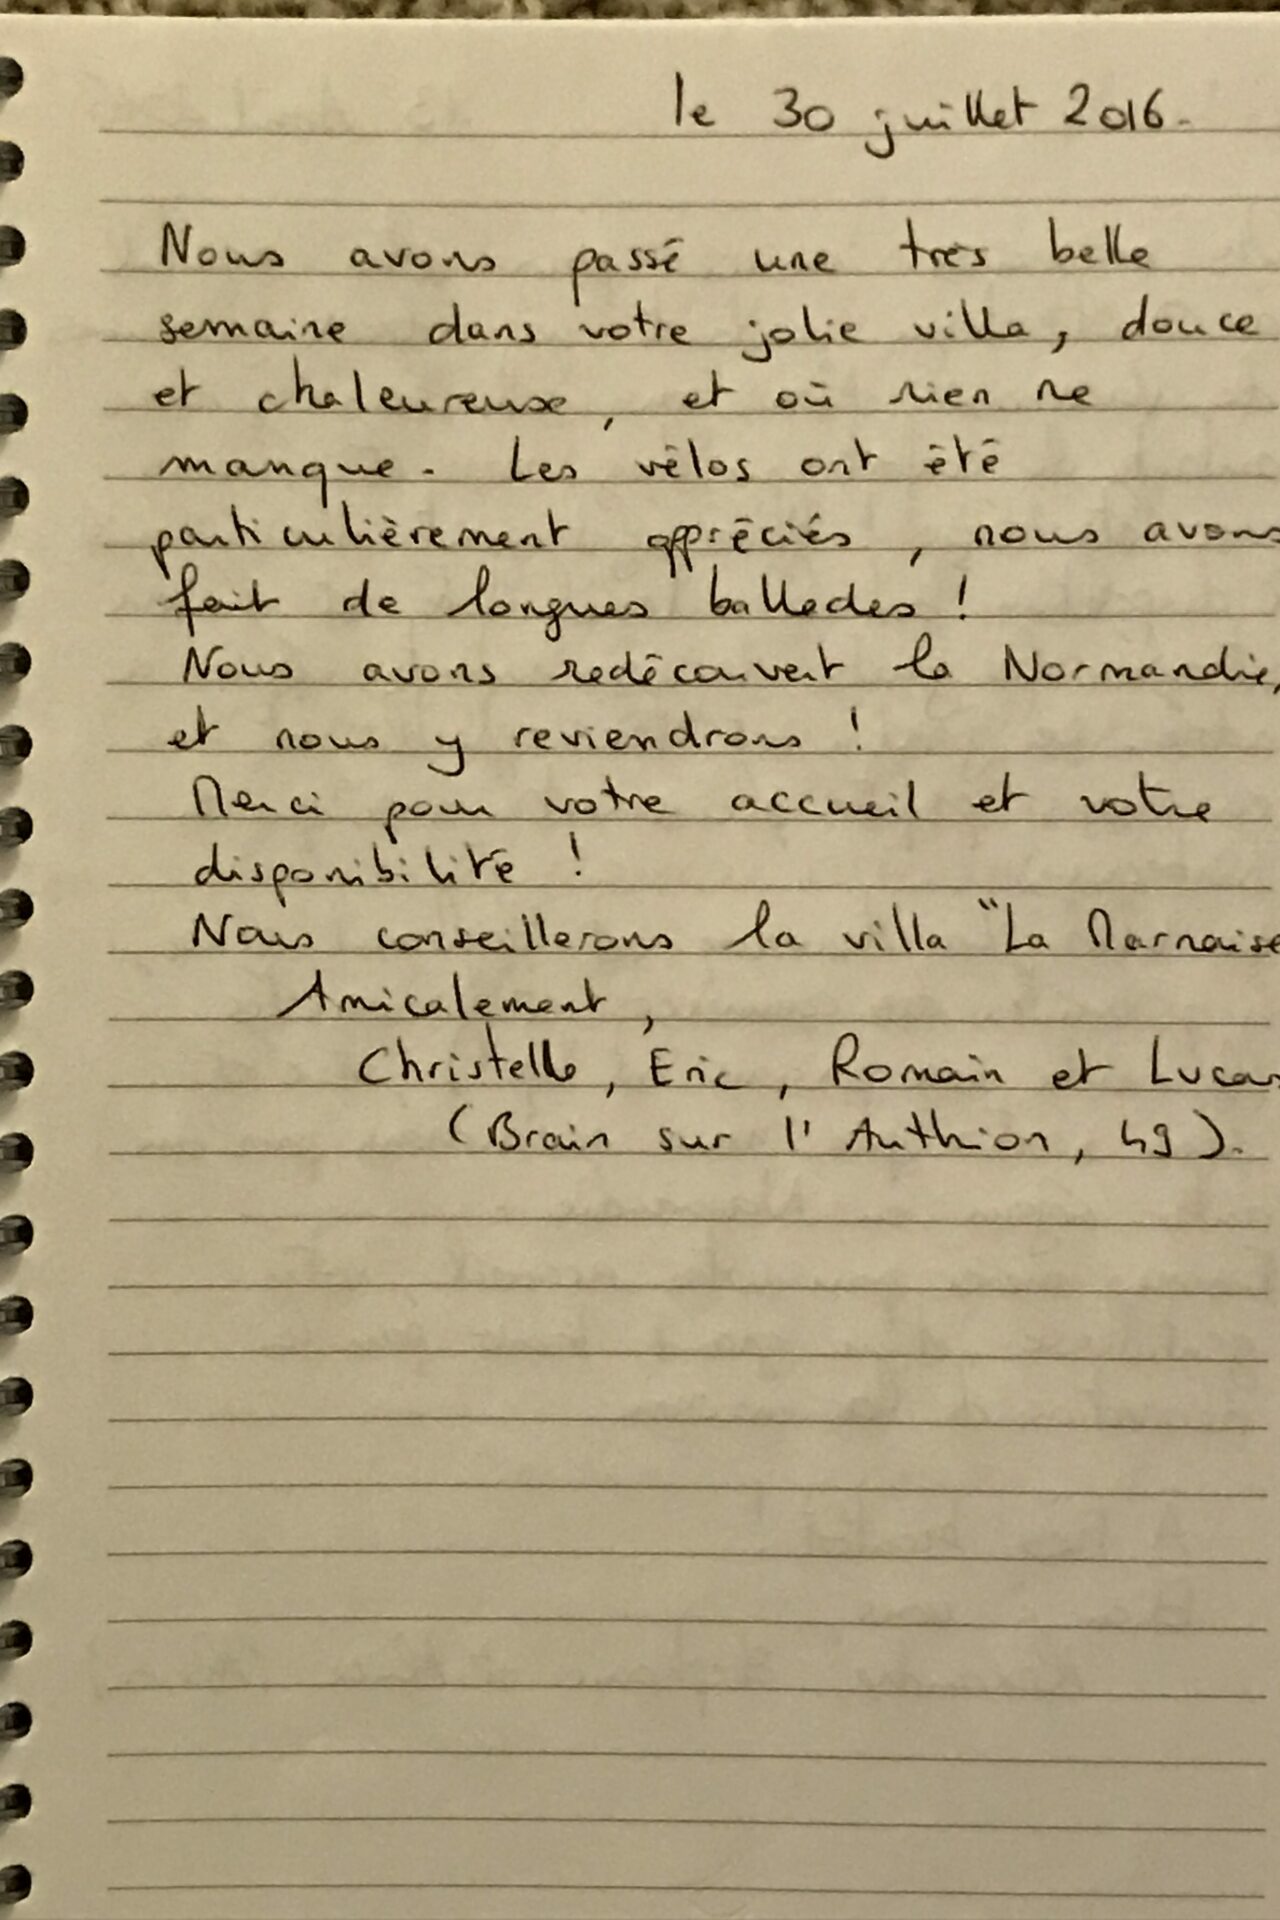 le 30 juillet 2016.
Nous avons passé une très belle
semaine dans votre jolie villa, douce
et chaleureuse, et où rien ne
manque. Les vélos ont été
particulièrement appréciés, nous avons
fait de longues ballades !
Nous avons redécouvert la Normandie,
et nous y reviendrons !
Merci pour votre accueil et votre
disponibilité !
Nous conseillerons la villa "La Marnaise
Amicalement,
Christelle, Eric, Romain et Lucas
(Brain sur l'Authion, 49).